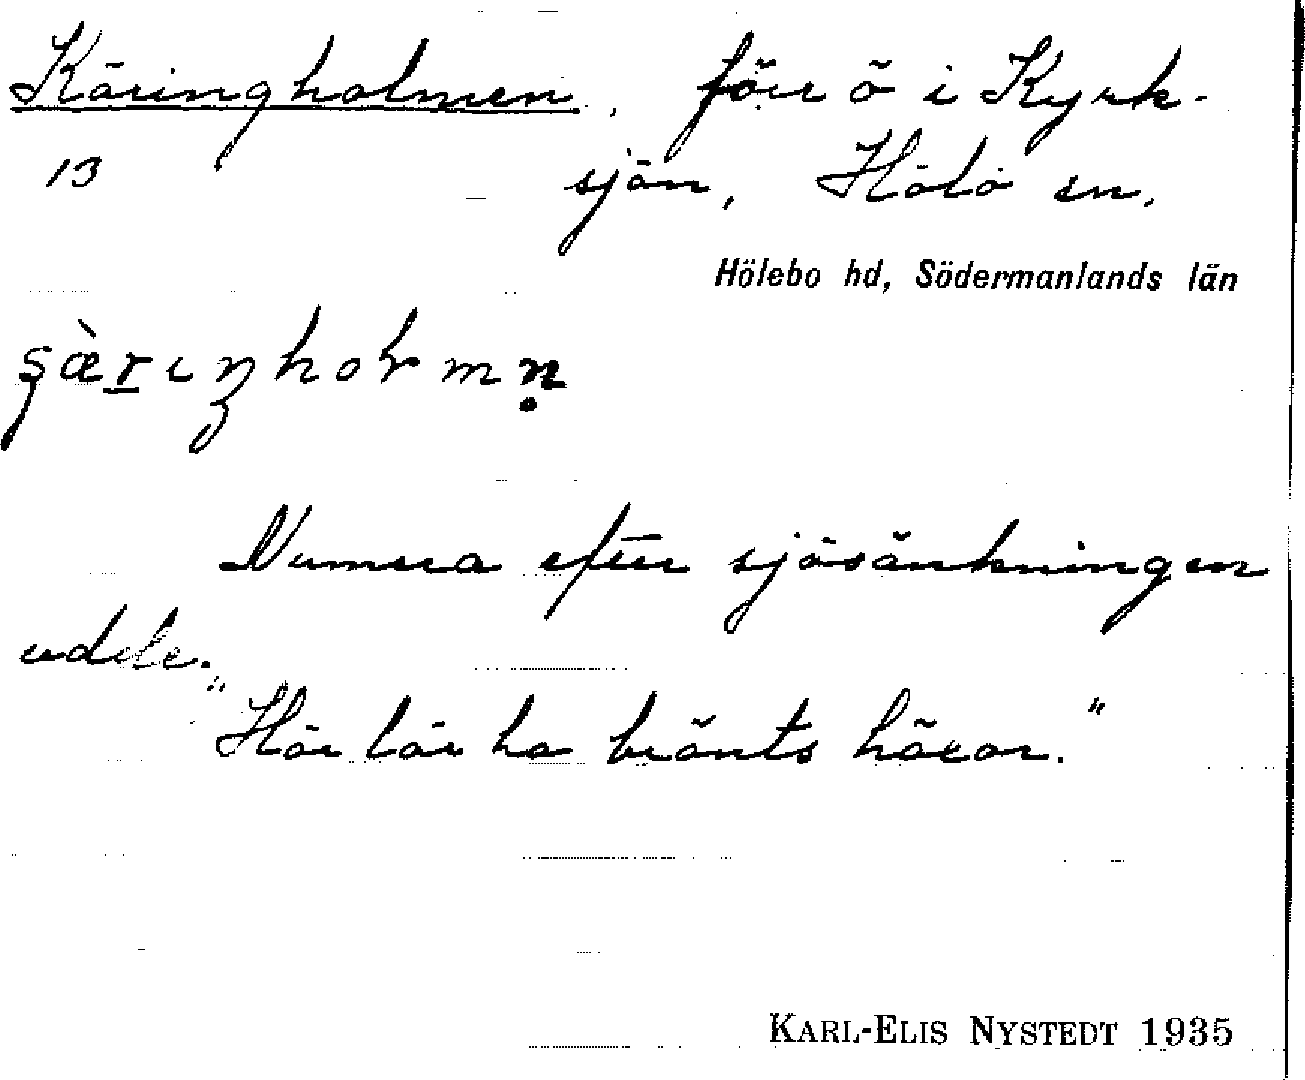 Käringholmen, förr ö i Kyrk-
13 sjön, Hölö sn.
Hölebo hd, Södermanlands län
Numera efter sjösänkningen
udde.
"Här lär ha bränts häxor."
KARL-ELIS NYSTEDT 1935